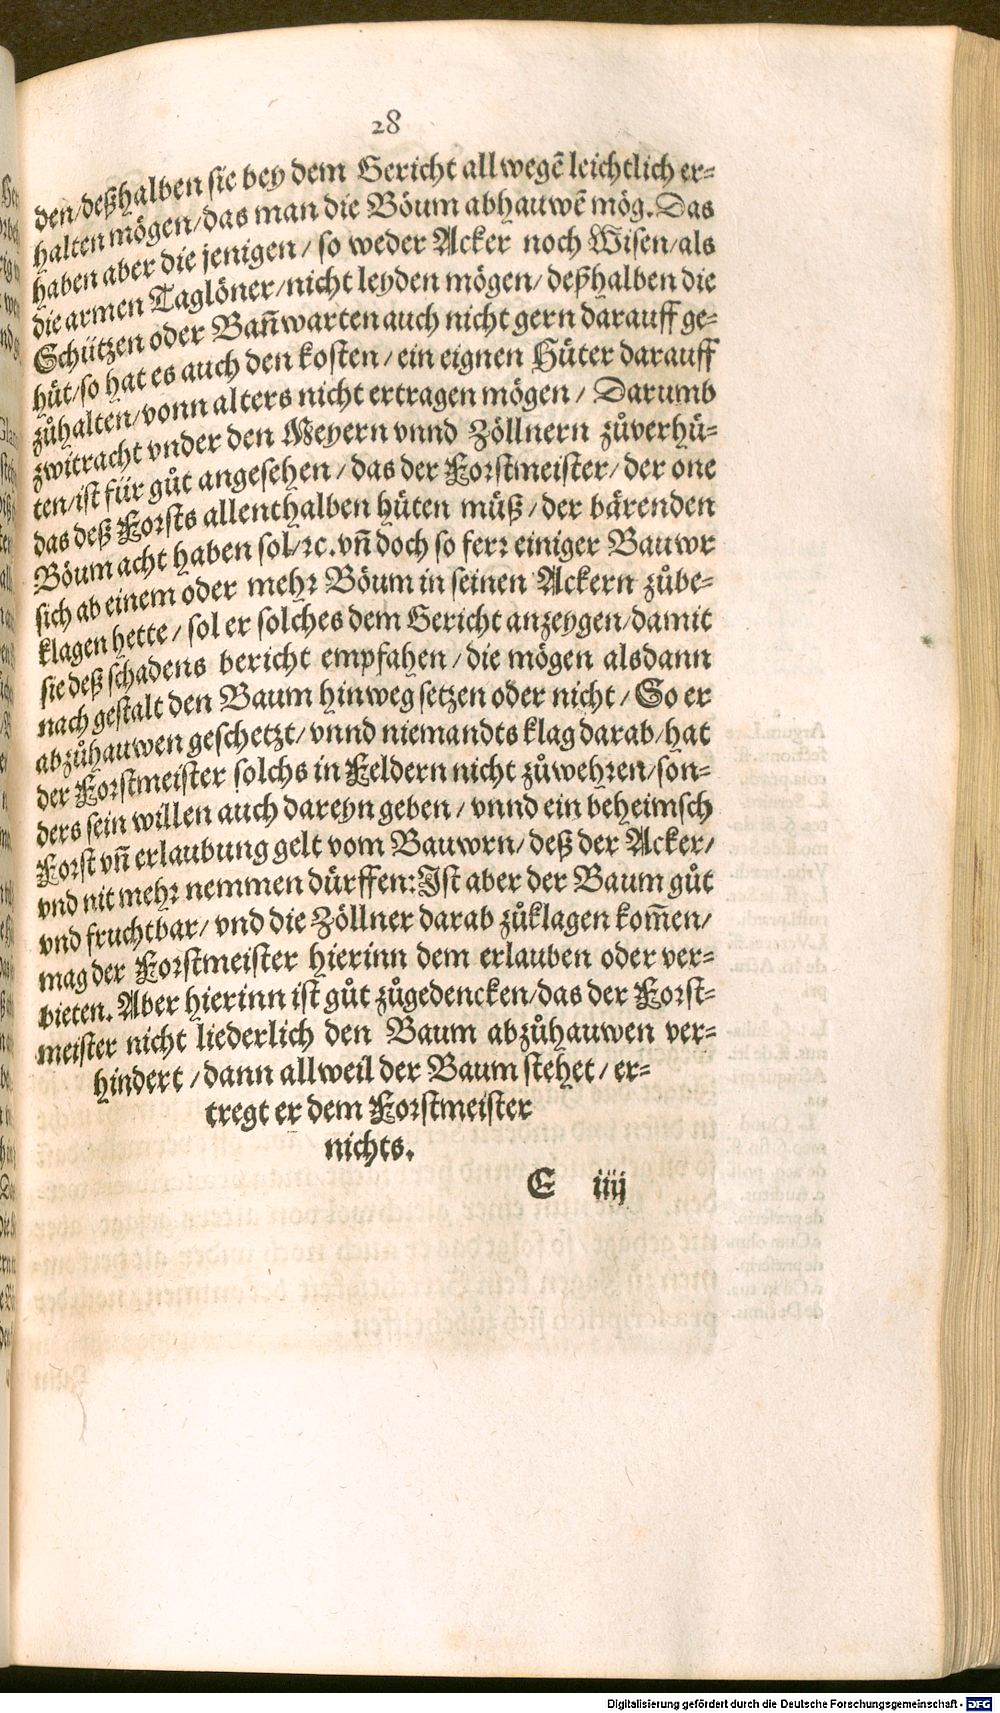 28
den/deßhalben sie bey dem Gericht allwegē leichtlich er-
halten mögen/das man die Böum abhauwē mög. Das
haben aber die jenigen/ so weder Acker noch Wisen/als
die armen Taglöner/nicht leyden mögen/deßhalben die
Schützen oder Bañwarten auch nicht gern darauff ge-
hüt/so hat es auch den kosten/ein eignen Hüter darauff
zůhalten/vonn alters nicht ertragen mögen/ Darumb
zwitracht vnder den Meyern vnnd Zöllnern zůverhü-
ten/ist für gůt angesehen/das der Forstmeister/der one
das deß Forsts allenthalben hüten müß/der bärenden
Böum acht haben sol/ꝛc.vñ doch so ferꝛ einiger Bauwr
sich ab einem oder mehꝛ Böum in seinen Ackern zůbe-
klagen hette/ sol er solches dem Gericht anzeygen/damit
sie deß schadens bericht empfahen/die mögen alsdann
nach gestalt den Baum hinweg setzen oder nicht/ So er
abzůhauwen geschetzt/vnnd niemandts klag darab/hat
der Foꝛstmeister solchs in Feldern nicht zůwehꝛen/son-
ders sein willen auch dareyn geben/ vnnd ein beheimsch
Foꝛst vñ erlaubung gelt vom Bauwrn/deß der Acker/
vnd nit mehꝛ nemmen dürffen:Ist aber der Baum gůt
vnd fruchtbar/ vnd die Zöllner darab zůklagen kom̃en/
mag der Foꝛstmeister hierinn dem erlauben oder ver-
bieten. Aber hierinn ist gůt zůgedencken/das der Foꝛst-
meister nicht liederlich den Baum abzůhauwen ver-
hindert/dann allweil der Baum stehet/er-
tregt er dem Foꝛstmeister
nichts.
E iiij
Digitalisierung gefördert durch die Deutsche Forschungsgemeinschaft - DFG